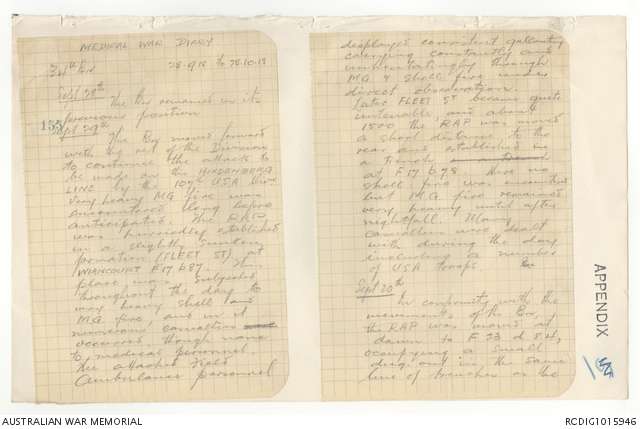 MEDICAL WAR DIARY
34th Bn 28-9-18 to 28-10-18
Sept 28th
The Bn remained in its
previous position
155
Sept 29th
The Bn moved forward
with the rest of the Division
to continue the attacks to
be made on the HINDENBERG
LINE by the USA Divn
Very heavy MG fire was
encountered long before
anticipated. The RAP
was hurriedly established
in a slightly sunken
(FLEET ST) at
F17 b 87. This
place was subjected
throughout the day to
very heavy shell and
M.G. fire, and in it
numerous casualties
occurred, though none
to medical personnel.
The attached Field
Ambulance personnel
displayed consistent gallantry
carrying constantly and
unhesitatingly through
MG & shell fire under
direct observation.
Later FLEET ST became quite
untenable and about
1500 the RAP was moved
a short distance to the
rear and established in
a trench
at F17 b 78. Here no
shell fire was encountered
but M.G. fire remained
very heavy until after
nightfall. Many
casualties were dealt
with during the day
including a number
of USA troops.
Sept 30th
In conformity with the
movements of the Bn,
the RAP was moved at
dawn to F 23 d 84,
occupying a small
dug-out in the same
line of trenches as the
APPENDIX
AUSTRALIAN WAR MEMORIAL
RCDIG1015946